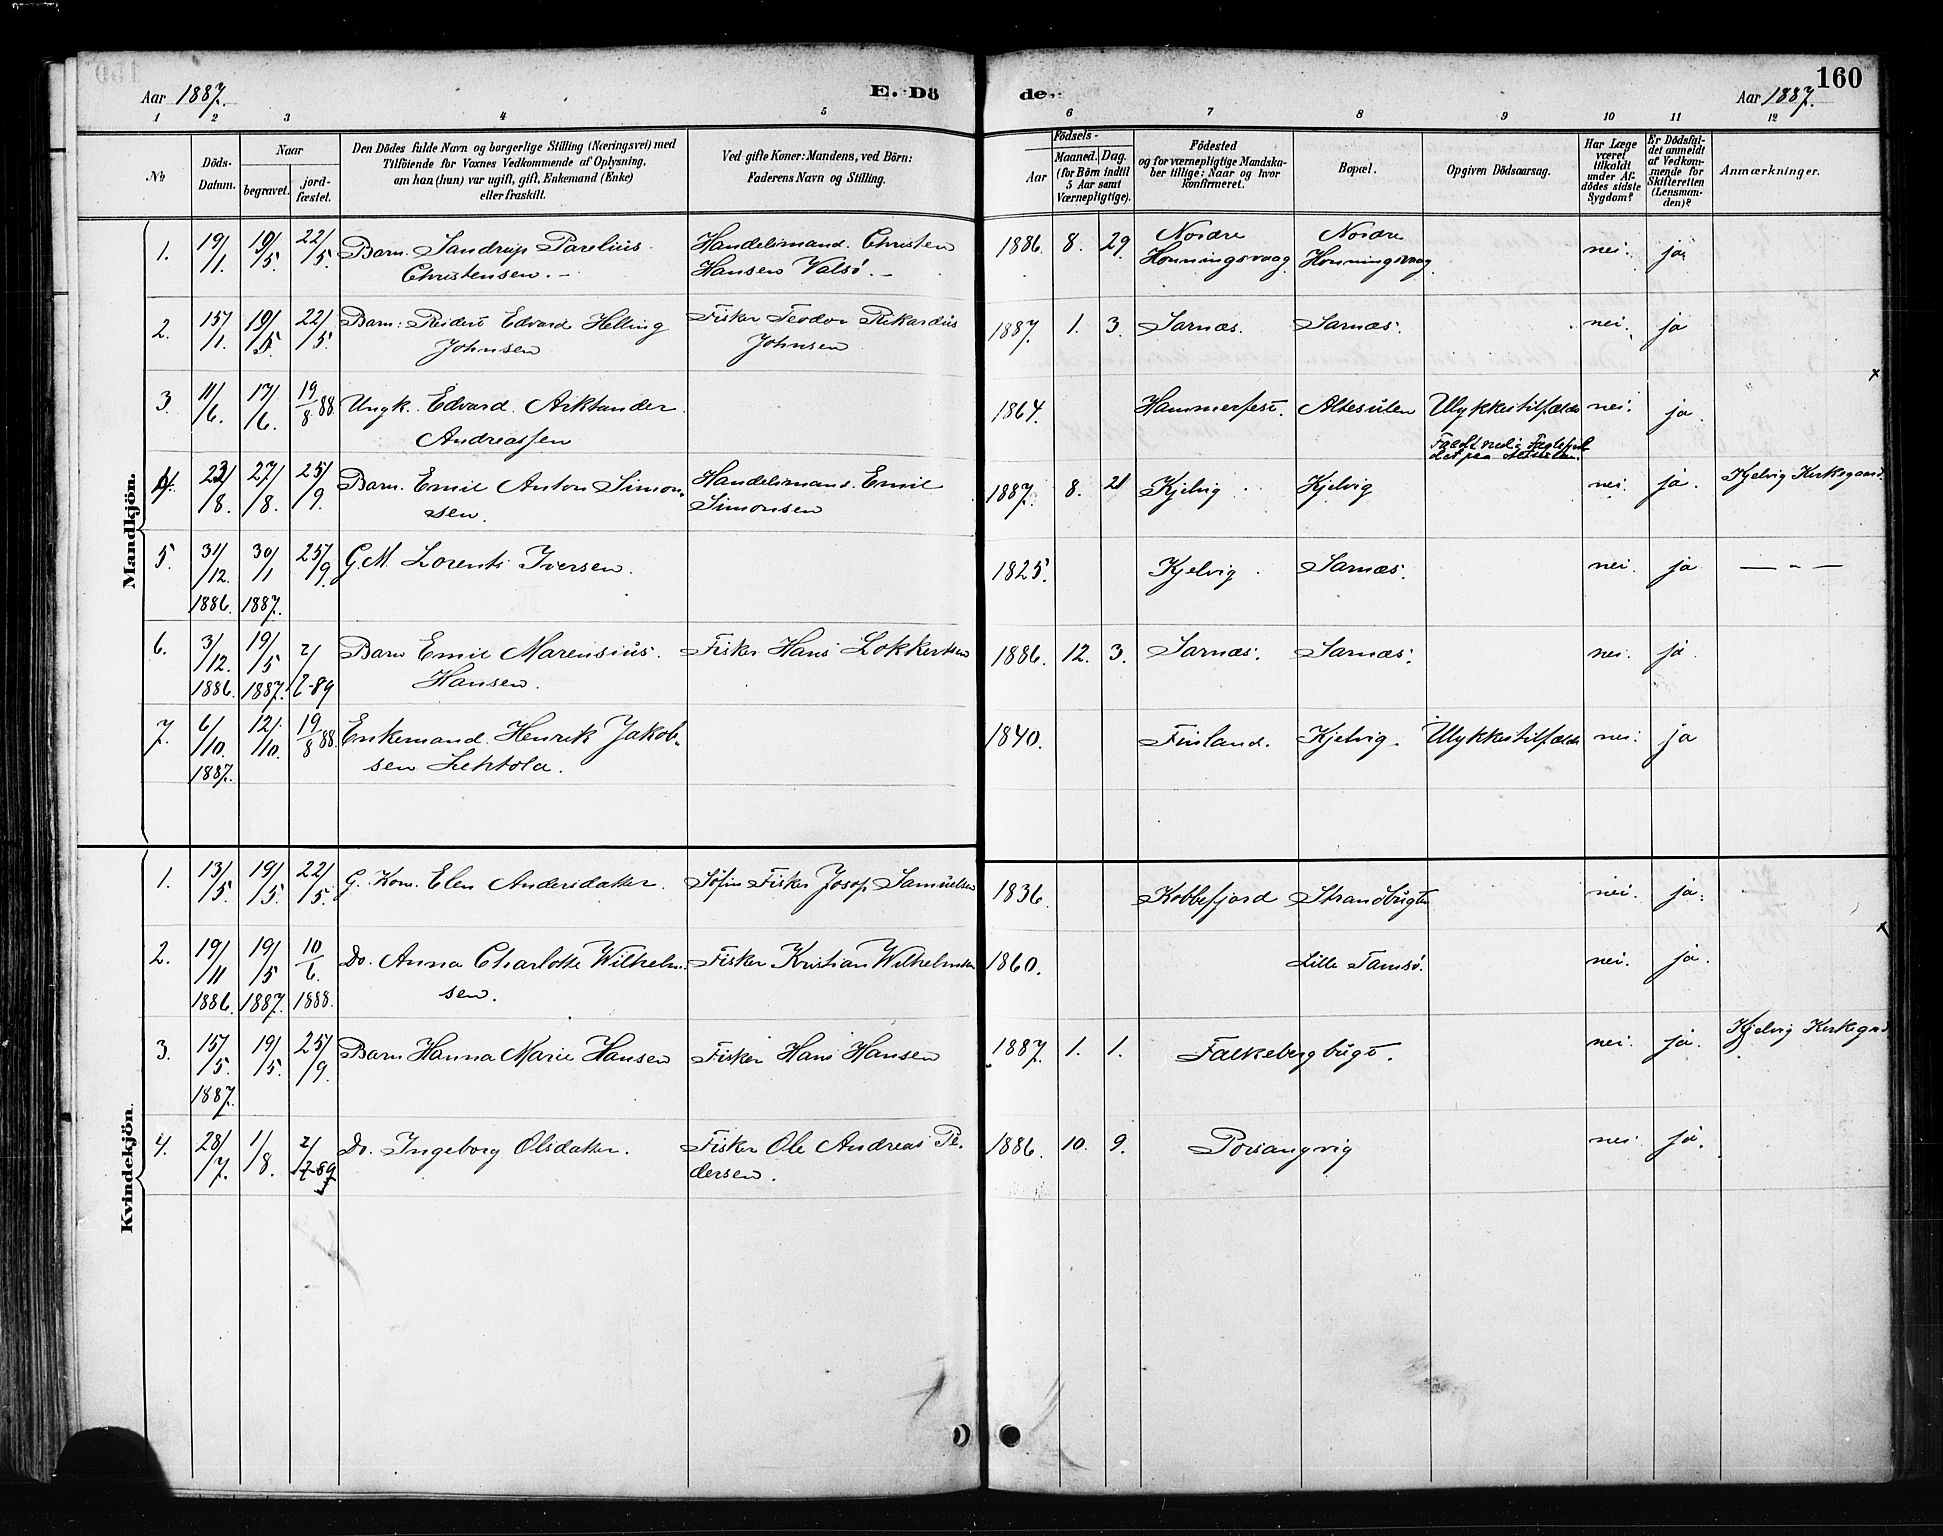 160
Aar 1887.
E. Dö
de.
Aar 1887.
1 2 3 4 5 6 7 8 9 10 11 12
No
Döds-
Datum.
Naar
begravet.
jord-
fæstet.
Den Dödes fulde Navn og borgerlige Stilling (Næringsvei) med
Tilföiende for Voxnes Vedkommende af Oplysning,
om han (hun) var ugift, gift, Enkemand (Enke)
eller fraskilt.
Ved gifte Koner: Mandens, ved Börn:
Faderens Navn og Stilling.
Födsels-
Aar
Maaned.
Dag.
(for Börn indtil
5 Aar samt
Værnepligtige).
Födested
og for værnepligtige Mandska-
ber tillige: Naar og hvor
konfirmeret.
Bopæl.
Opgiven Dödsaarsag.
Har Læge
været
tilkaldt
under Af-
dödes sidste
Sygdom?
Er Dödsfal-
det anmeldt
af Vedkom-
mende for
Skifteretten
(Lensman-
den)?
Anmærkninger.
Mandkjön.
1. 19/1. 19/5 22/5. Barn. Sandrup Parelius Handelsmand. Christen 1886 8. 29. Nordre Nordre nei. ja
Christensen. Hansen Valsö. Honningsvaag Honningsvaag
2. 15/1. 19/5. 22/5. Barn: Edvard Helling Fisker Teodor Rikardus 1887. 1. 3. Sarnæs. Sarnæs. nei. ja
Johnsen Johnsen
3. 11/6. 17/6. 19/8 88. Ungk. Edvard Arktander 1864. Hammerfest. Altesulen Ulykkestilfælde nei. ja.
Andreassen
4. 23/8. 27/8. 25/9. Barn. Emil Anton Simon- Handelsmand. Emil 1887. 8. 21 Kjelvig Kjelvig nei. ja. Kjelvig Kirkegaard
sen. Simonsen
5. 31/12. 30/1 25/9. G. M. Lorents Iversen. 1825. Kjelvig. Sarnæs. nei. ja — " —
1886. 1887.
6. 3/12. 19/5 2/ Barn Emil Marensius. Fisker Hans Lokkertsen 1886. 12. 3. Sarnæs. Sarnæs. nei. ja.
1886. 1887. 2-89 Hansen.
7. 6/10. 12/10. 19/8 88. Enkemand. Henrik Jakob- 1840. Finland. Kjelvig. Ulykkestilfælde nei. ja
1887. sen
Kvindekjön.
1. 13/5. 19/5. 22/5. G. Kone. Elen Andersdatter. Fisker Josop Samuelsen 1836. Kobbefjord Strandbugten nei. ja.
2. 19/11 19/5 10/6. Do. Anna Charlotte Wilhelm- Fisker Kristian Wilhelmsen 1860. Lille Tamsö. nei. ja.
1886. 1887. 1888. sen.
3. 15/5. 19/5. 25/9. Barn Hanna Marie Hansen Fisker Hans Hansen 1887. 1. 1. Falkebergbugt. nei. ja. Kjelvig Kirkegaard
1887.
4. 28/7. 1/8. 2/ Do. Ingeborg Olsdatter. Fisker Ole Andreas Pe- 1886. 10. 9. Porsangvig nei ja.
2-89 dersen.